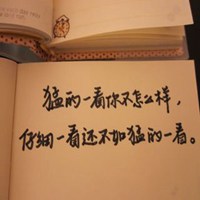 猛的一看你不怎么样，
仔细一看还不如猛的一看。